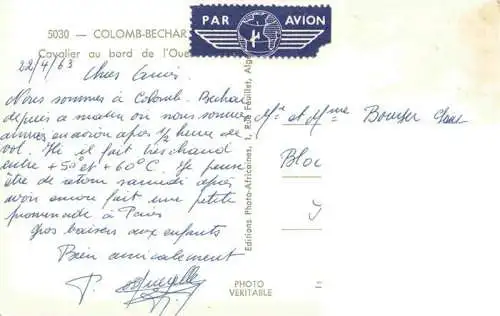 5030 — COLOMB-BECHAR
Cavalier au bord de l'Oue
PAR AVION
22/4/63
Chers Amis
Nous sommes à Colomb. Bechar
depuis ce matin ou nous sommes
arrivés en avion après 1/2 heure de
vol. Ici il fait très chaud
entre +50° et +60°C. Je pense
être de retour samedi après
avoir encore fait une petite
promenade à Paris
Gros baisers aux enfants
Bien amicalement
P.
Editions Photo-Africaines, 1, Rue Feuillet, Alge
Mr et Mme
Bloc
PHOTO
VERITABLE